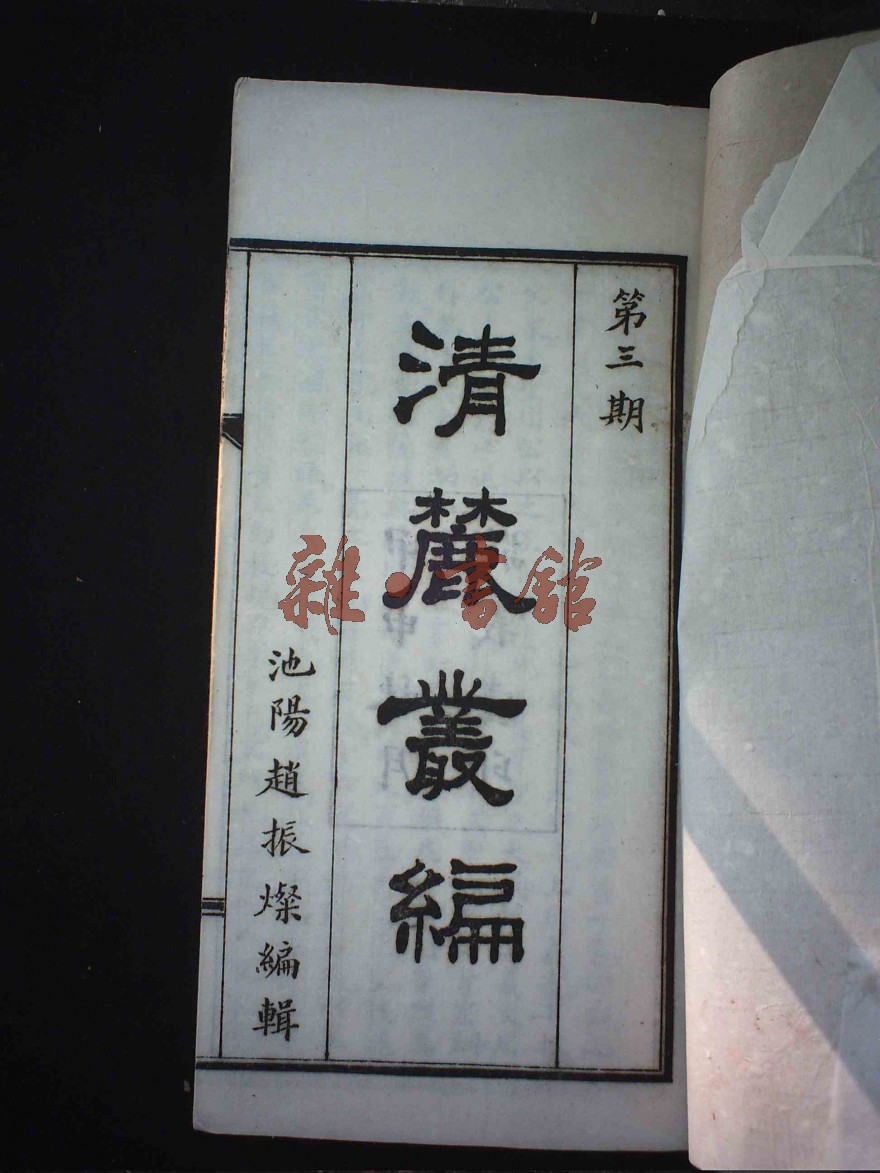 第三期
清麓叢編
池陽趙振燦編輯
雜·書館